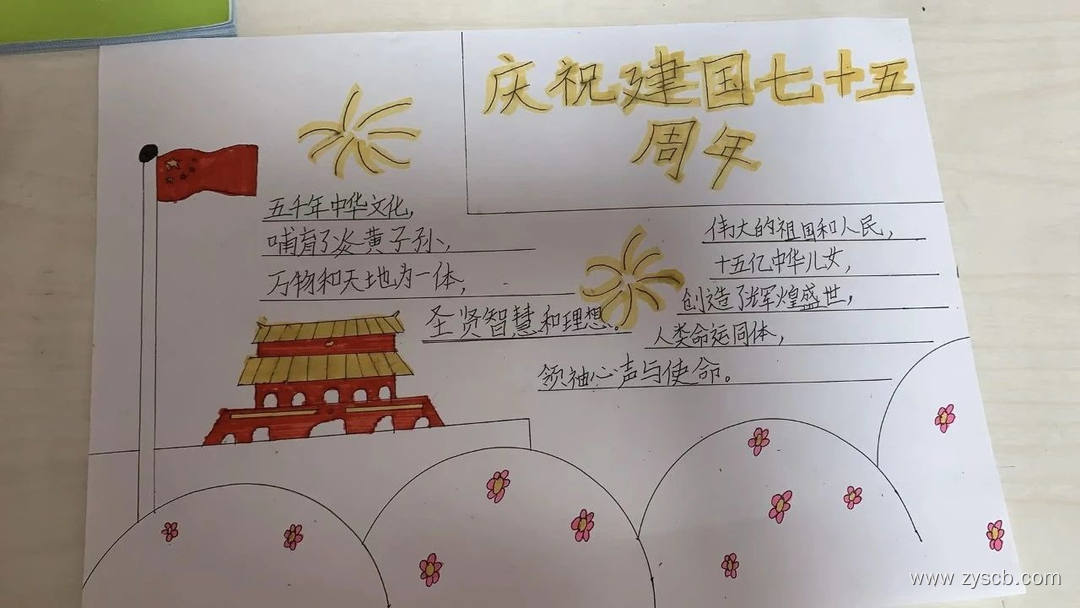 庆祝建国七十五
周年
五千年中华文化，
哺育了炎黄子孙，
万物和天地为一体，
圣贤智慧和理想。
伟大的祖国和人民，
十五亿中华儿女，
创造了辉煌盛世，
人类命运同体，
领袖心声与使命。
www.zyscb.com